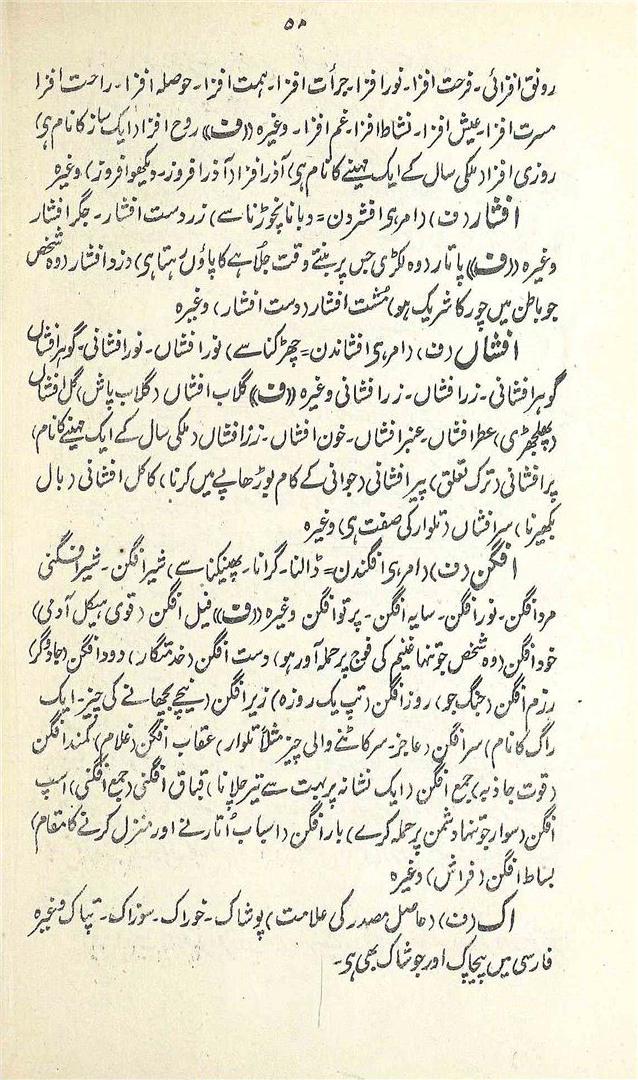 ۵۰
رونق افزائی۔ فرحت افزا۔ نور افزا۔ جرأت افزا۔ ہمت افزا۔ حوصلہ افزا۔ راحت افزا
مسرت افزا۔ عیش افزا۔ نشاط افزا۔ غم افزا۔ وغیرہ ((ف)) روح افزا (ایک ساز کا نام ہی)
روزی افزا (ملکی سال کے ایک مہینے کا نام ہی) آذر افزا (آذر افروز۔ دیکھو افروز) وغیرہ
افشار (ف) (امر ہی افشردن = دبانا نچوڑنا سے) زر دست افشار۔ جگر افشار
وغیرہ ((ف)) پا تار (وہ لکڑی جس پر بنتے وقت جلاہے کا پاؤں رہتا ہی) دزد افشار (وہ شخص
جو باطن میں چور کا شریک ہو) مُشت افشار (دست افشار) وغیرہ
افشاں (ف) (امر ہی افشاندن = چھڑکنا سے) نور افشاں۔ نور افشانی۔ گوہر افشاں
گوہر افشانی۔ زر افشاں۔ زر افشانی وغیرہ ((ف)) گلاب افشاں (گلاب پاش) گل افشاں
(پھلجھڑی) عطر افشاں۔ عنبر افشاں۔ خون افشاں۔ رز افشاں (ملکی سال کے ایک مہینے کا نام)
پر افشانی (ترک تعلق) پیر افشانی (جوانی کے کام بوڑھاپے میں کرنا) کاکل افشانی (بال
بکھیرنا) سر افشاں (تلوار کی صفت ہی) وغیرہ
افگن (ف) (امر ہی افگندن = ڈالنا۔ گرانا۔ پھینکنا سے) شیر افگن۔ شیر افگنی
مرد افگن۔ نور افگن۔ سایہ افگن۔ پرتو افگن وغیرہ ((ف)) فیل افگن (قوی ہیکل آدمی)
خود افگن (وہ شخص جو تنہا غنیم کی فوج پر حملہ آور ہو) دست افگن (خدمتگار) دود افگن (جادوگر)
رزم افگن (جنگ جو) روز افگن (تپ یک روزہ) زیر افگن (نیچے بچھانے کی چیز۔ ایک
راگ کا نام) سر افگن (عاجز۔ سر کاٹنے والی چیز مثلاً تلوار) عقاب افگن (غلام) کمند افگن
(قوت جاذبہ) جمع افگن (ایک نشانہ پر بہت سے تیر چلانا) قباق افگنی (جمع افگنی) اسپ
افگن (سوار جو تنہا دشمن پر حملہ کرے) بار افگن (اسباب اُتارنے اور منزل کرنے کا مقام)
بساط افگن (فراش) وغیرہ
اک (ف) (حاصل مصدر کی علامت) پوشاک۔ خوراک۔ سوزاک۔ تپاک وغیرہ
فارسی میں پیچاک اور جوشاک بھی ہی۔